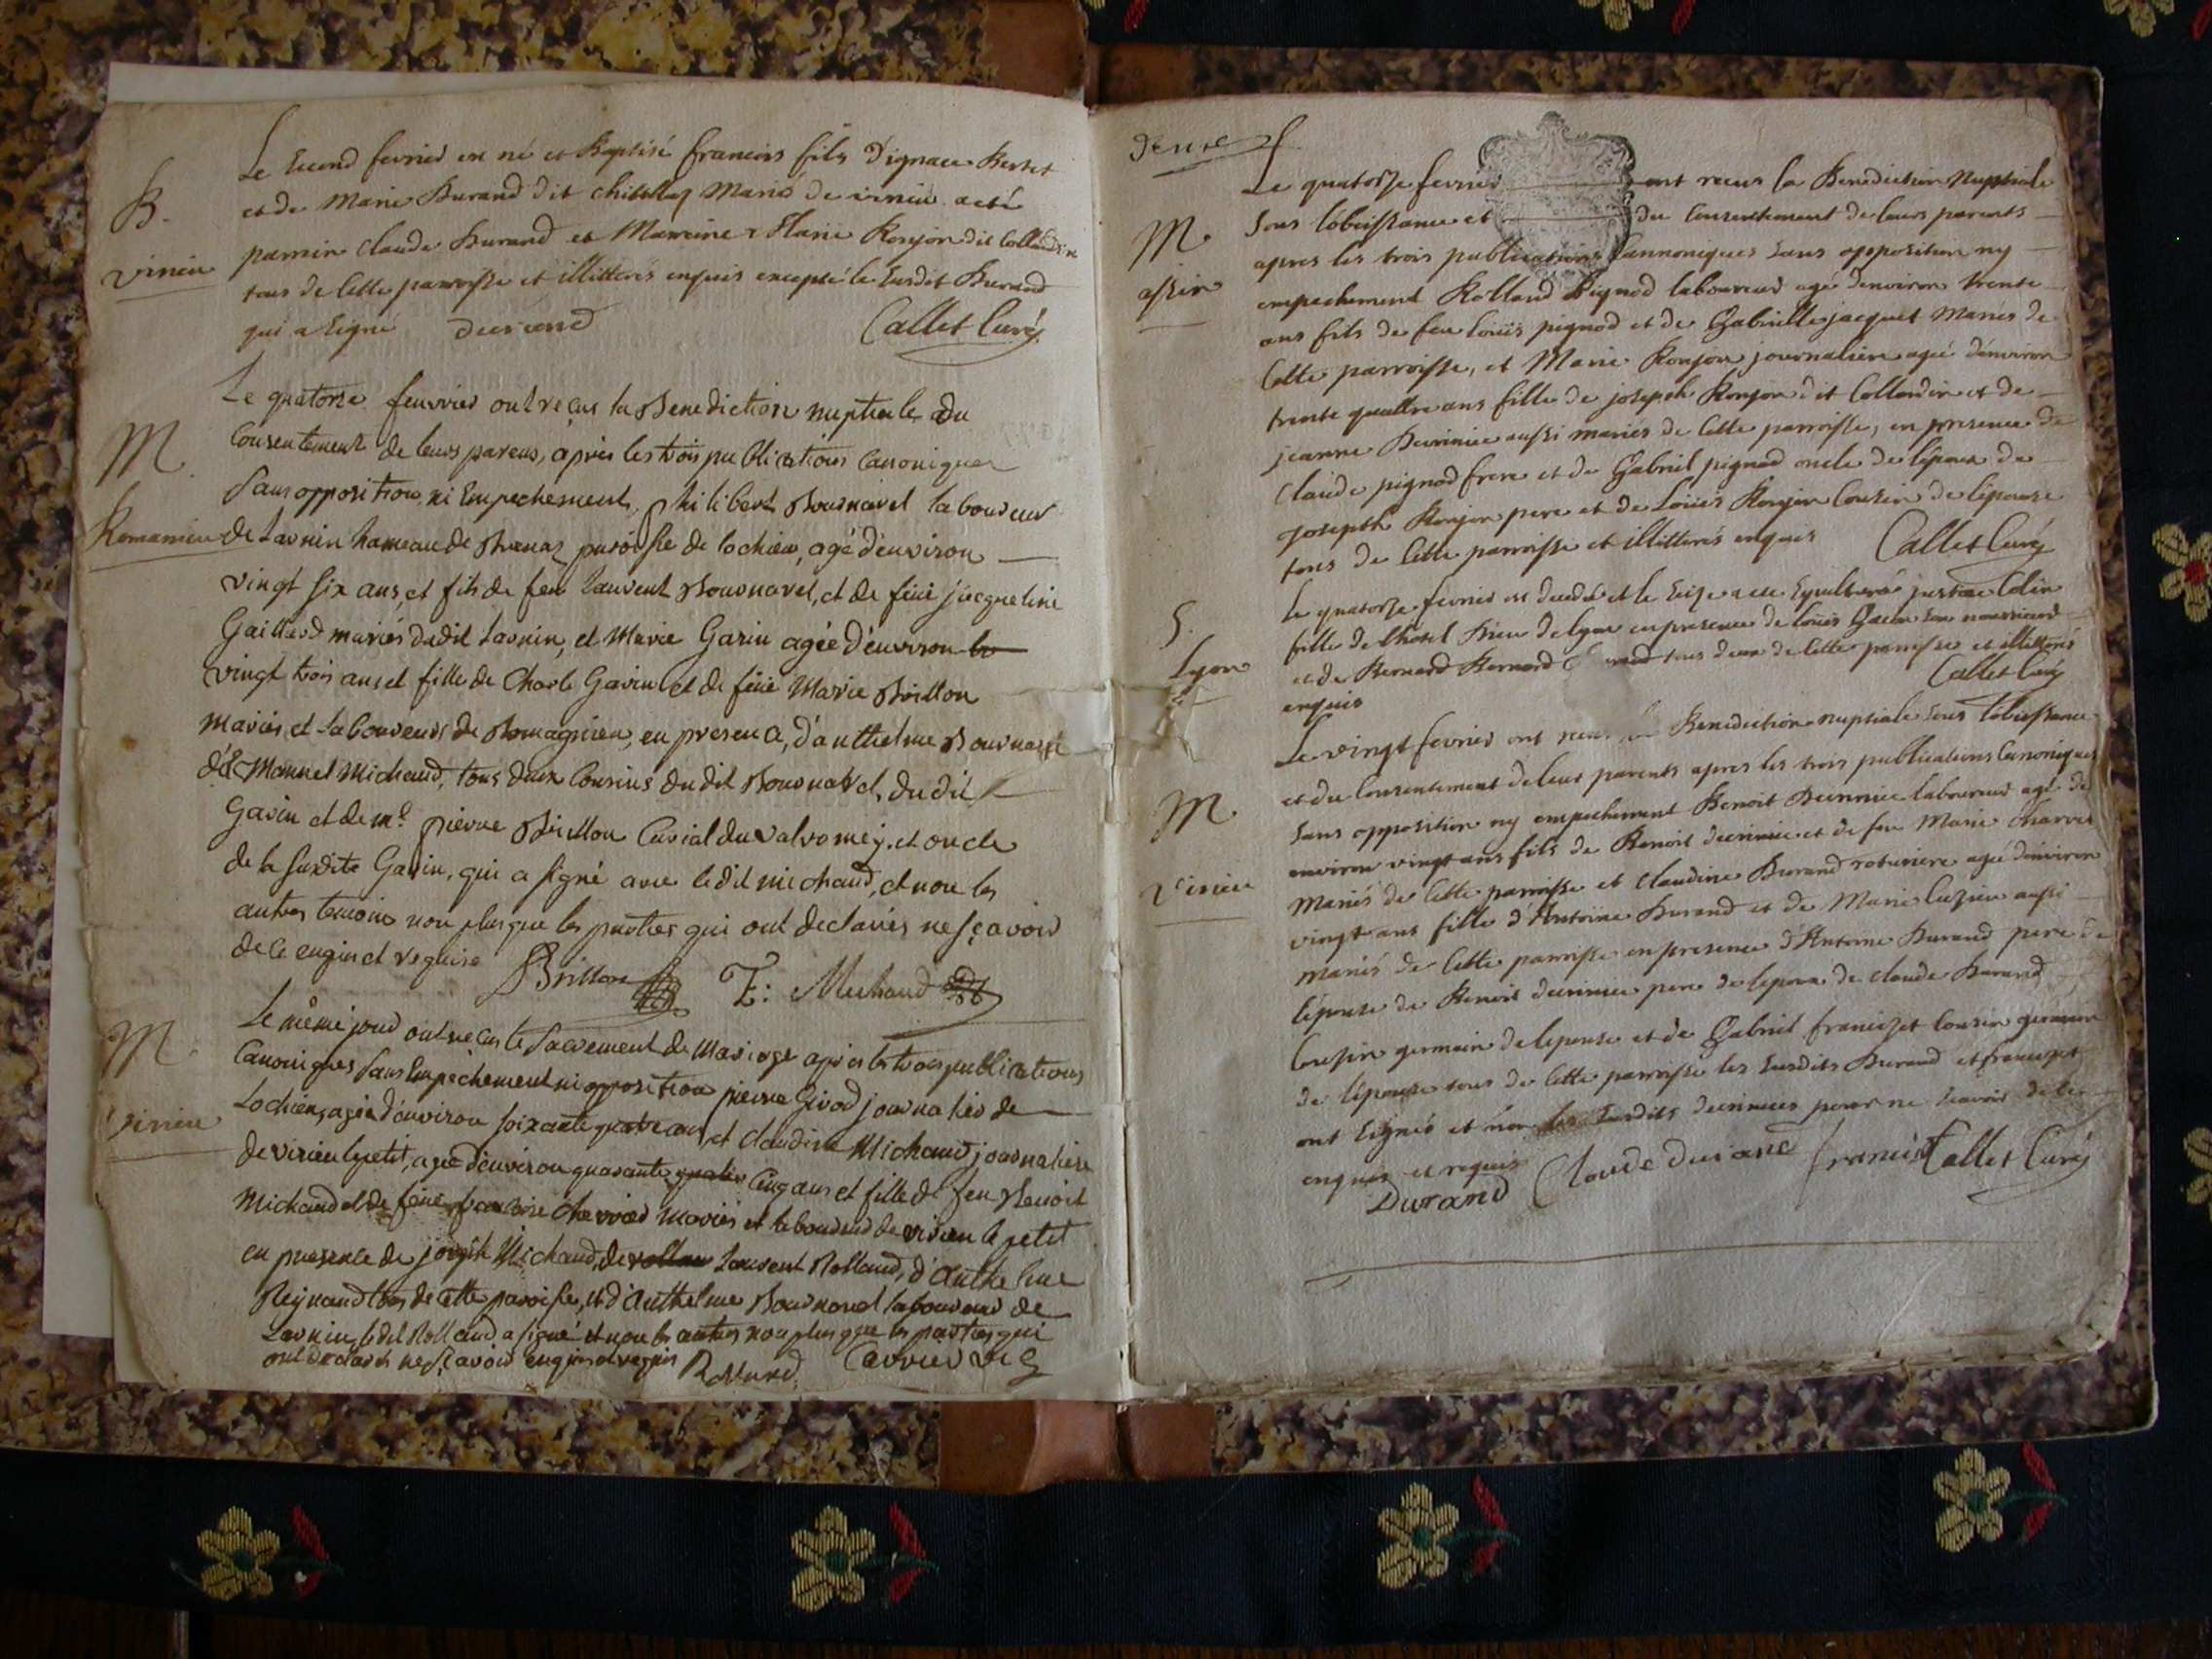 Le second fevrier est né et Baptisé francois fils d'ignace Bertet
B.
et de Marie Durand dit Chatillon Mariés de virieu a eté
parrin Claude Durand et Marreine Marie Konjon dit Collardin
virieu
tous de Cette parroisse et illitterés enquis excepté le susdit Durand
qui a signé durand Callet Curé
Le quatorze feuvrier ont reçus la Benediction nuptiale du
Consentement de leurs parens, après les trois publications Canoniques
M
Sans opposition, ni Empechement, Philibert Bournavel laboureur
Romanieu de Lavnin hameau de paroisse de lochieu, agé d'environ
vingt six ans, et fils de feu Laurent Bournavel, et de feüe jacqueline
Gaillard mariés dudit Lavnin, et Marie Garin agée d'environ
vingt trois ans et fille de Charle Garin et de feüe Marie Brillon
Mariés et Laboureurs de Romagnieu, en presence, d'anthelme Bournavel
d'Emannuel Michaud, tous deux Cousins du dit Bournavel, du dit
Garin et de me. pierre Brillon Curial du valromey, et oncle
de la susdite Garin, qui a signé avec ledit michaud, et non les
autres temoins non plus que les parties qui ont declarés ne sçavoir
de ce enquis et requis Brillon E: Michaud
Le même jour ont reçus le Sacrement de Mariage après les trois publications
M
Canoniques Sans Empechement ni opposition pierre Girod journalier de
Lochieu, agé d'environ soixante quatre ans, et Claudine Michaud journaliere
virieu
de virieu le petit, agée d'environ quarante Cinq ans et fille de feu Benoit
Michaud et de feüe francoise Chevrier mariés et laboureurs de virieu le petit
en presence de joseph Michaud, de Laurent Rolland, d'Anthelme
Reynaud tous de cette paroisse, et d'Anthelme Bournavel laboureur de
Lavnin, ledit Rolland a signé et non les autres non plus que les parties qui
ont declarés ne sçavoir enquis et requis Rolland Carrier vic
deux
Le quatorze fevrier ont receus la Benediction Nuptiale
M
sous l'obeissance et du Consentement de leurs parents
apres les trois publications Cannoniques sans opposition ny
assin
empechement Rolland Pignod laboureur agé denviron trente
ans fils de feu Loüis pignod et de Gabrielle jacquet Mariés de
Cette parroisse, et Marie Konjon journaliere agée d'environ
trente quattre ans fille de joseph Konjon dit Collardin et de
jeanne Decrinier aussi mariés de Cette parroisse, en presence de
Claude pignod frere et de Gabriel pignod oncle de l'époux de
joseph Konjon pere et de Loüis Konjon Cousin de l'épouse
tous de Cette parroisse et illitterés enquis Callet Curé
S.
Le quatorze fevrier est et le seize a eté justine Colin
fille de L'hotel Dieu de Lyon en presence de Loüis son nourricier
Lyon
et de Bernard Bernard tous deux de Cette parroisse et illitterés
enquis Callet Curé
Le vingt fevrier ont receus Benediction nuptiale sous l'obeissance
et du Consentement de leur parents apres les trois publications Canoniques
M
sans opposition ny empechement Benoit Decrinier laboureur agé de
environ vingt ans fils de Benoit decrinier et de feu Marie Charvet
virieu
Mariés de Cette parroisse et Claudine Durand roturiere agée d'environ
vingt ans fille d'Antoine Durand et de Marie aussi
mariés de Cette parroisse en presence d'Antoine Durand pere de
l'épouse de Benoit decrinier pere de lepoux de Claude Durand
Cousin germain de lepouse et de Gabriel francizet Cousin germain
de l'épouse tous de Cette parroisse les susdits Durand et francizet
ont signés et non les susdits decriniers pour ne scavoir de ce
enquis et requis Claude durand Callet Curé
Durand